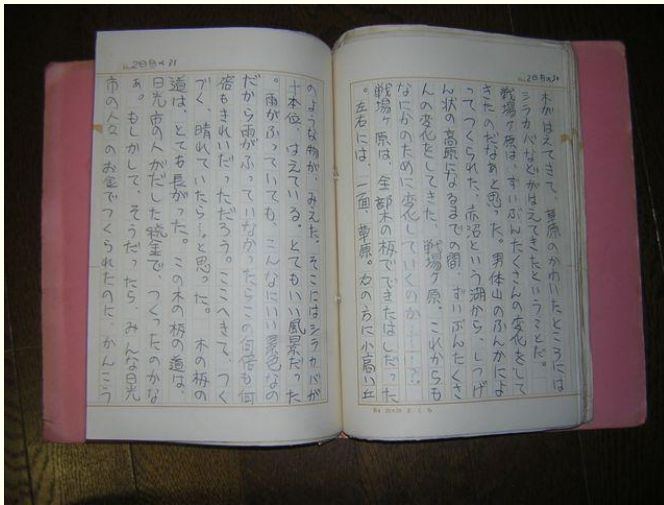 No.2日目の30
木がはえてきて、草原のかわいたところには
シラカバなどがはえてきたということだ。
戦場ヶ原は、ずいぶんたくさんの変化をして
きたのだなあと思った。男体山のふんかによ
って、つくられた、赤沼という湖から、しつげ
ん状の高原になるまでの間、ずいぶんたくさ
んの変化をしてきた、戦場ヶ原。これからも
なにかのために変化していくのか……?。
戦場ヶ原は、全部木の板でできたはしだった
。左右には、一面、草原。右の方に小高い丘
No.2日目の31
のような物が、みえた。そこにはシラカバが
十本位、はえている。とてもいい風景だった
。雨がふっていても、こんなにいい景色なの
だから雨がふっていなかったらこの何倍も何
倍もきれいだっただろう。ここへきて、つく
づく、晴れていたら…と思った。 木の板の
道は、とても長かった。この木の板の道は、
日光市の人がだした税金で、つくったのかな
ぁ。もしかして、そうだったら、みんな日光
市の人々のお金でつくられたのに、かんこう